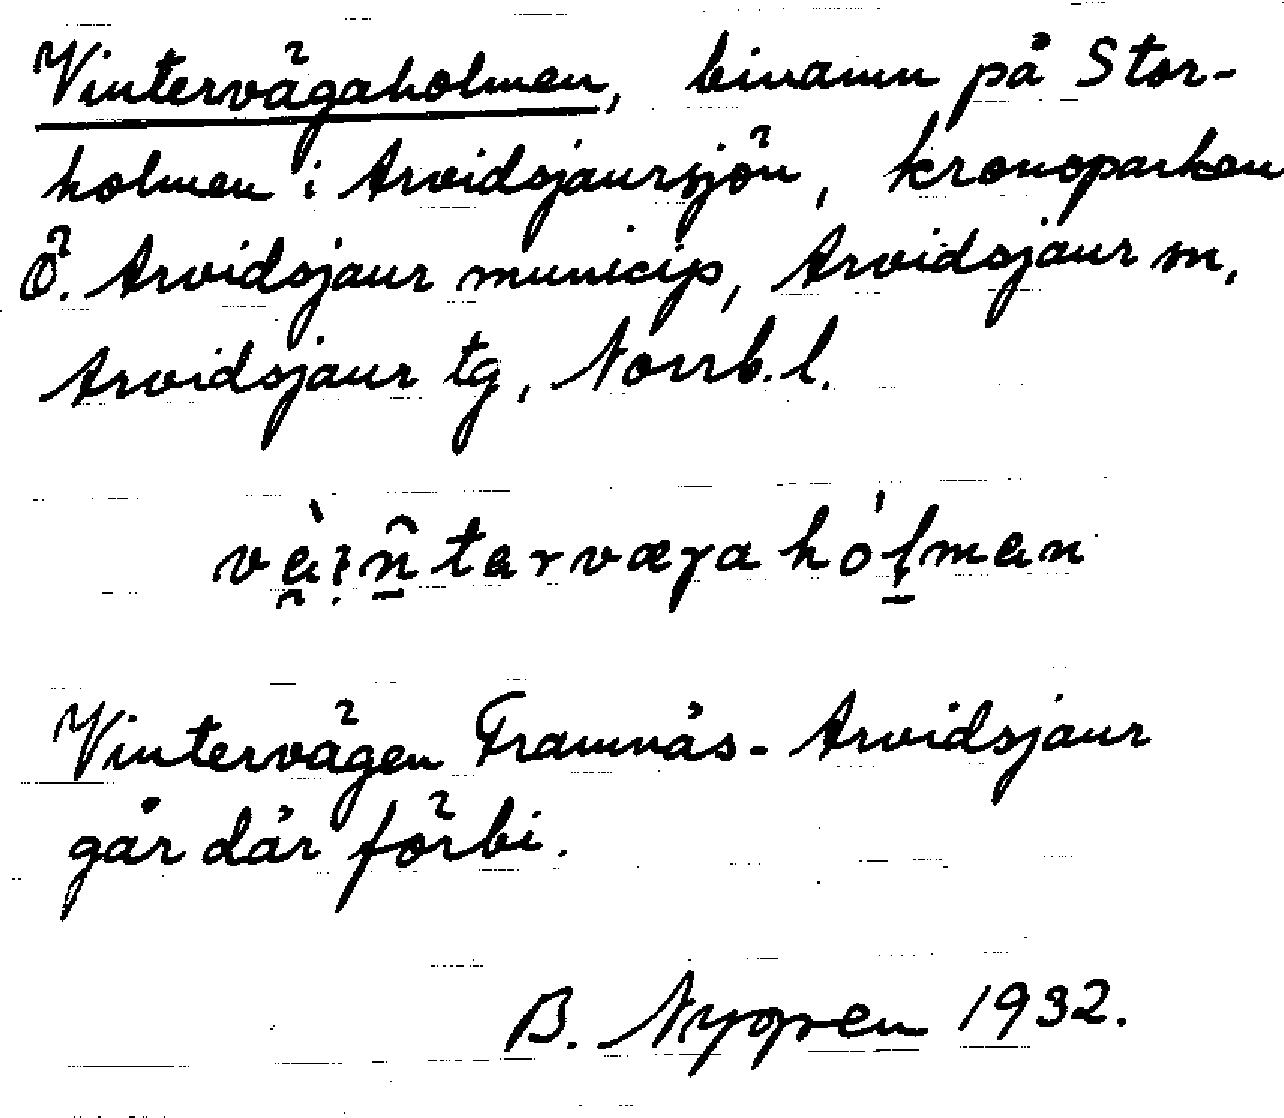 Vintervägaholmen, binamn på Stor-
holmen i Arvidsjaursjön, kronoparken
Ö. Arvidsjaur municip, Arvidsjaur sn,
Arvidsjaur tg, Norrb. l.
Vintervägen Framnäs - Arvidsjaur
går där förbi.
B. Nygren 1932.